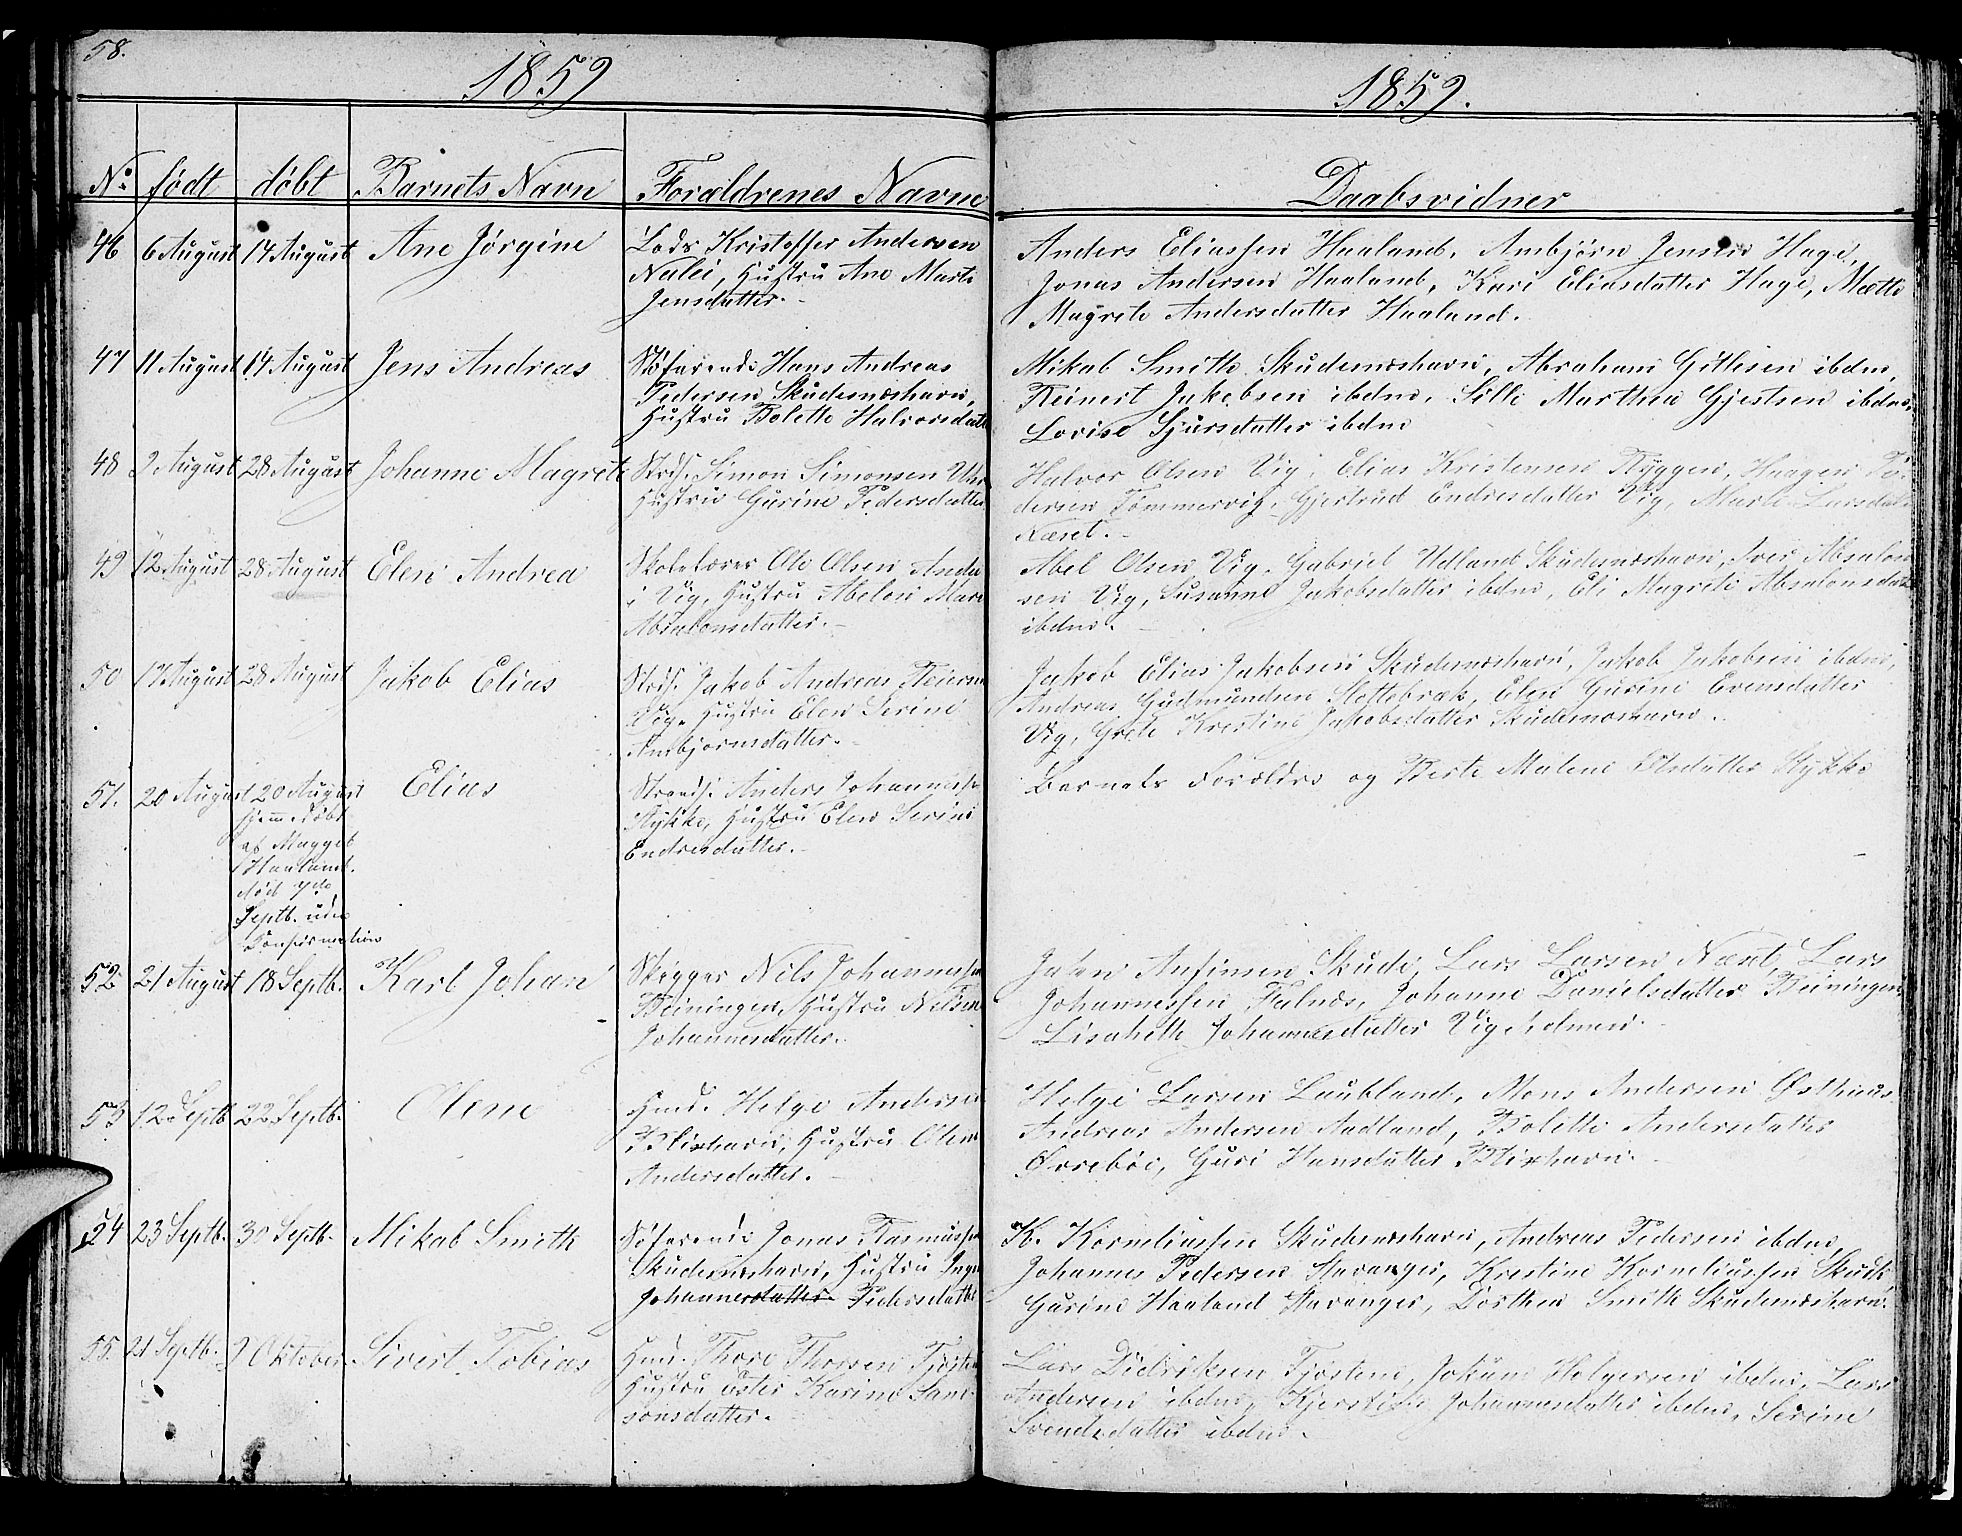 58.
1859
1859.
No født døbt Barnets Navn Forældrenes Navne
Daabsvidner
46 6 August 14 August Ane Jørgine
Lods Kristoffer Andersen
Nalei, Hustru Ane Marte
Jensdatter.
Anders Eliassen Haaland, Ambjørn Jensen Hage,
Jonas Andersen Haaland, Kari Eliasdatter Hage, Mætte
Magrete Andersdatter Haaland.
47 11 August 14 August Jens Andreas
Søfarende Hans Andreas
Pedersen Skudesnæshavn,
Hustru Bolette Halvorsdatt
Mikal Smitte Skudesnæshavn, Abraham Gitlesen ibdm,
Reinert Jakobsen ibdm, Sille Marthea Gjertsen ibdm,
Lovise Sjursdatter ibdm
48 2 August 28 August Johanne Magrete
Strds. Simon Simonsen
Hustru Gurine Pedersdatter
Halvor Olsen Vig Elias Kristensen Ryggen, Haagen Pe-
dersen Tømmervig, Gjertrud Endresdatter Vig, Marte Larsdat
Næset.
49 12 August 28 August Elen Andrea
Skolelærer Ole Olsen
i Vig, Hustru Abelon Mari
Absalonsdatter.
Abel Olsen Vig, Gabriel Udland Skudesnæshavn, Iver Absalon
sen Vig, Susanne Jakobsdatter ibdm, Eli Magrete Absalonsdat
ibdm.
50 17 August 28 August Jakob Elias
Strds. Jakob Andreas
Vig, Hustru Elen Serine
Ambjørnsdatter.
Jakob Elias Jakobsen Skudesnæshavn, Jakob Jakobsen ibdm,
Andreas Gudmundsen Slettebræk, Elen Gurine Evensdatter
Vig, Grete Kristine Jakobsdatter Skudesnæshavn.
51. 20 August 20 August Elias
hjemmedøbt
af Maggel
Haaland.
død 7de
Septb. uden
Confirmation
Strands. Anders Johannesse
Stykke, Hustru Elen Serine
Endresdatter.
Barnets Forældre og Berte Malene Olsdatter Stykke
52 21 August 18 Septb. Karl Johan
Skrepper Nils Johannesse
Beiningen, Hustru Nilsine
Johannesdatter.
Jakob Anfinsen Skude, Lars Larsen Næset, Lars
Johannessen Falnæs, Johanne Danielsdatter Beiningen,
Lisabeth Johannesdatter Vigeholmen.
53 12 Septb 22 Septb. Olene
Hmd. Helge Andersen
Blixhavn, Hustru Olene
Andersdatter.
Helge Larsen Laubland, Mons Andersen Østhuus
Andreas Andersen Aadland, Bolette Andersdatter
Øvrebøe, Guri Hansdatter Blixhavn.
54 23 Septb. 30 Septb. Mikal Smith
Søfarende Jonas Rasmusse
Skudesnæshavn, Hustru Inge
Johannesdatter Pedersdatter
K. Korneliussen Skudesnæshavn, Andreas Pedersen ibdm,
Johannes Pedersen Stavanger, Kristine Korneliussen Skude,
Gurine Haaland Stavanger, Dorthea Smith Skudesnæshavn.
55. 21 Septb. 9 Oktober Sivert Tobias
Hmd. Thore Thorsen Tjøsten
Hustru Ester Karine Sam-
sonsdatter.
Lars Didriksen Tjøstem, Jokum Holgersen ibdm, Lars
Andersen ibdm, Kjerstine Johannesdatter ibdm, Serine
Svendsdatter ibdm.